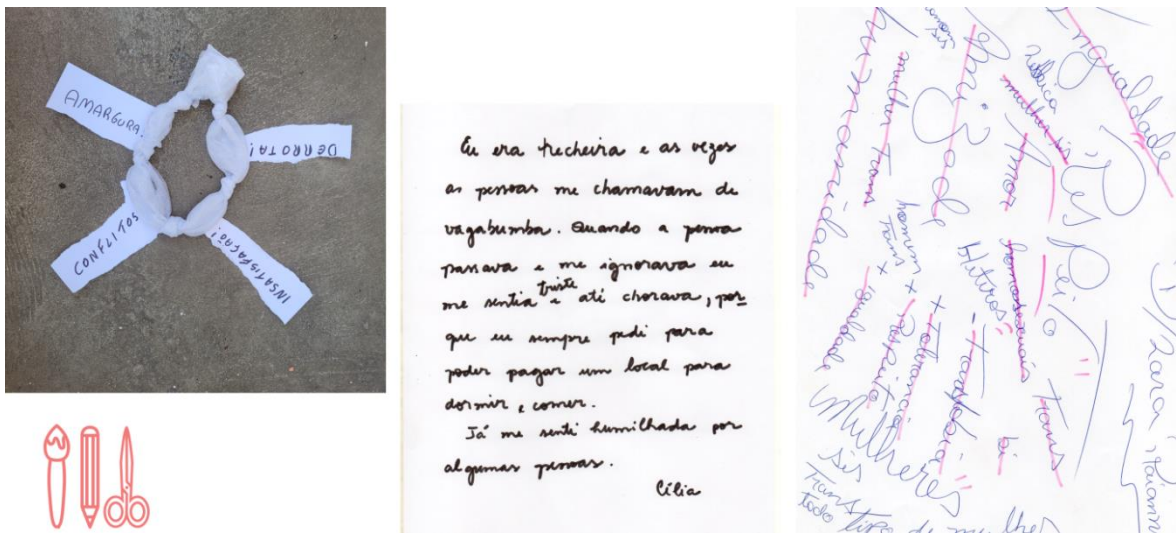 AMARGURA!
DERROTA!
CONFLITOS
INSATISFAÇÃO!
Eu era trecheira e as vezes
as pessoas me chamavam de
vagabumba. Quando a pessoa
passava e me ignorava eu
me sentia triste e até chorava, por
que eu sempre pedi para
poder pagar um local para
dormir e comer.
Já me senti humilhada por
algumas pessoas.
Cilia
Ingualdade
Respeito
Amor
mulher is
homossexuais
Trans
bi
Héteros
Transfobia
+ Tolerancia
+ Respeito
+ igualdade
homens trans
mulher trans
humanidade
Mulheres
sis
Trans
todo tipo de mulher